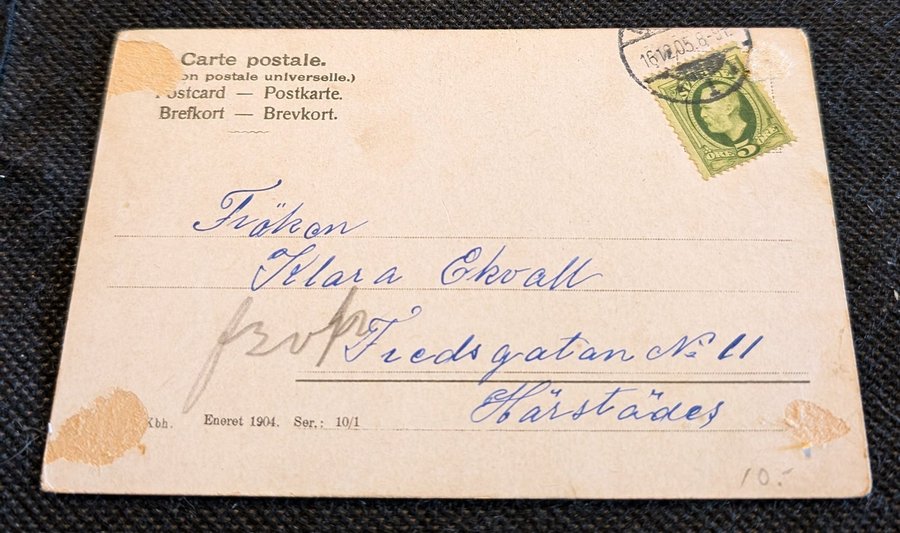 Carte postale.
on postale universelle.)
Postcard — Postkarte.
Brefkort — Brevkort.
16.12.05.8-9F.
5
Frökon
Klara Ekvall
Fredsgatan No 11
Härstädes
Kbh. Eneret 1904. Ser.: 10/1
10.-